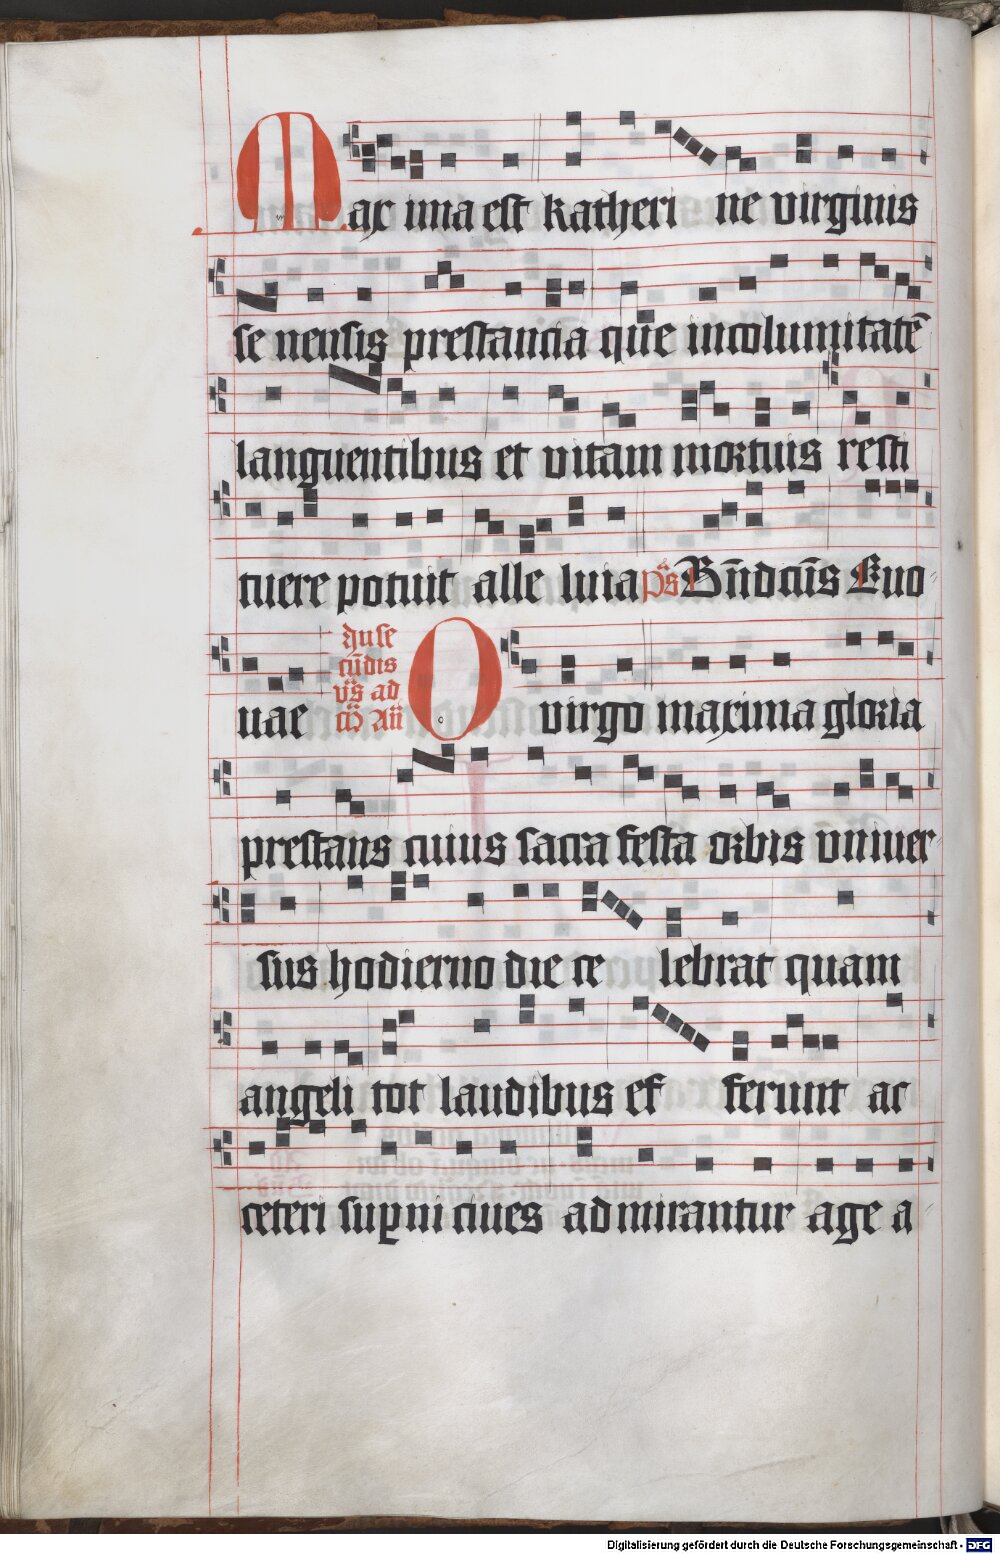 Max ima est katheri ne virginis
se nensis prestancia que incolumitatē
languentibus et vitam mortuis resti
tuere potuit alle luia p̄s Bn̄dcūs Euo
uae
In se
cūdis
vs̄ ad
O virgo maxima gloria
prestans cuius sacra festa orbis vniuer
sus hodierno die ce lebrat quam
angeli tot laudibus ef ferunt ac
ceteri suꝑni ciues admirantur age a
Digitalisierung gefördert durch die Deutsche Forschungsgemeinschaft - DFG